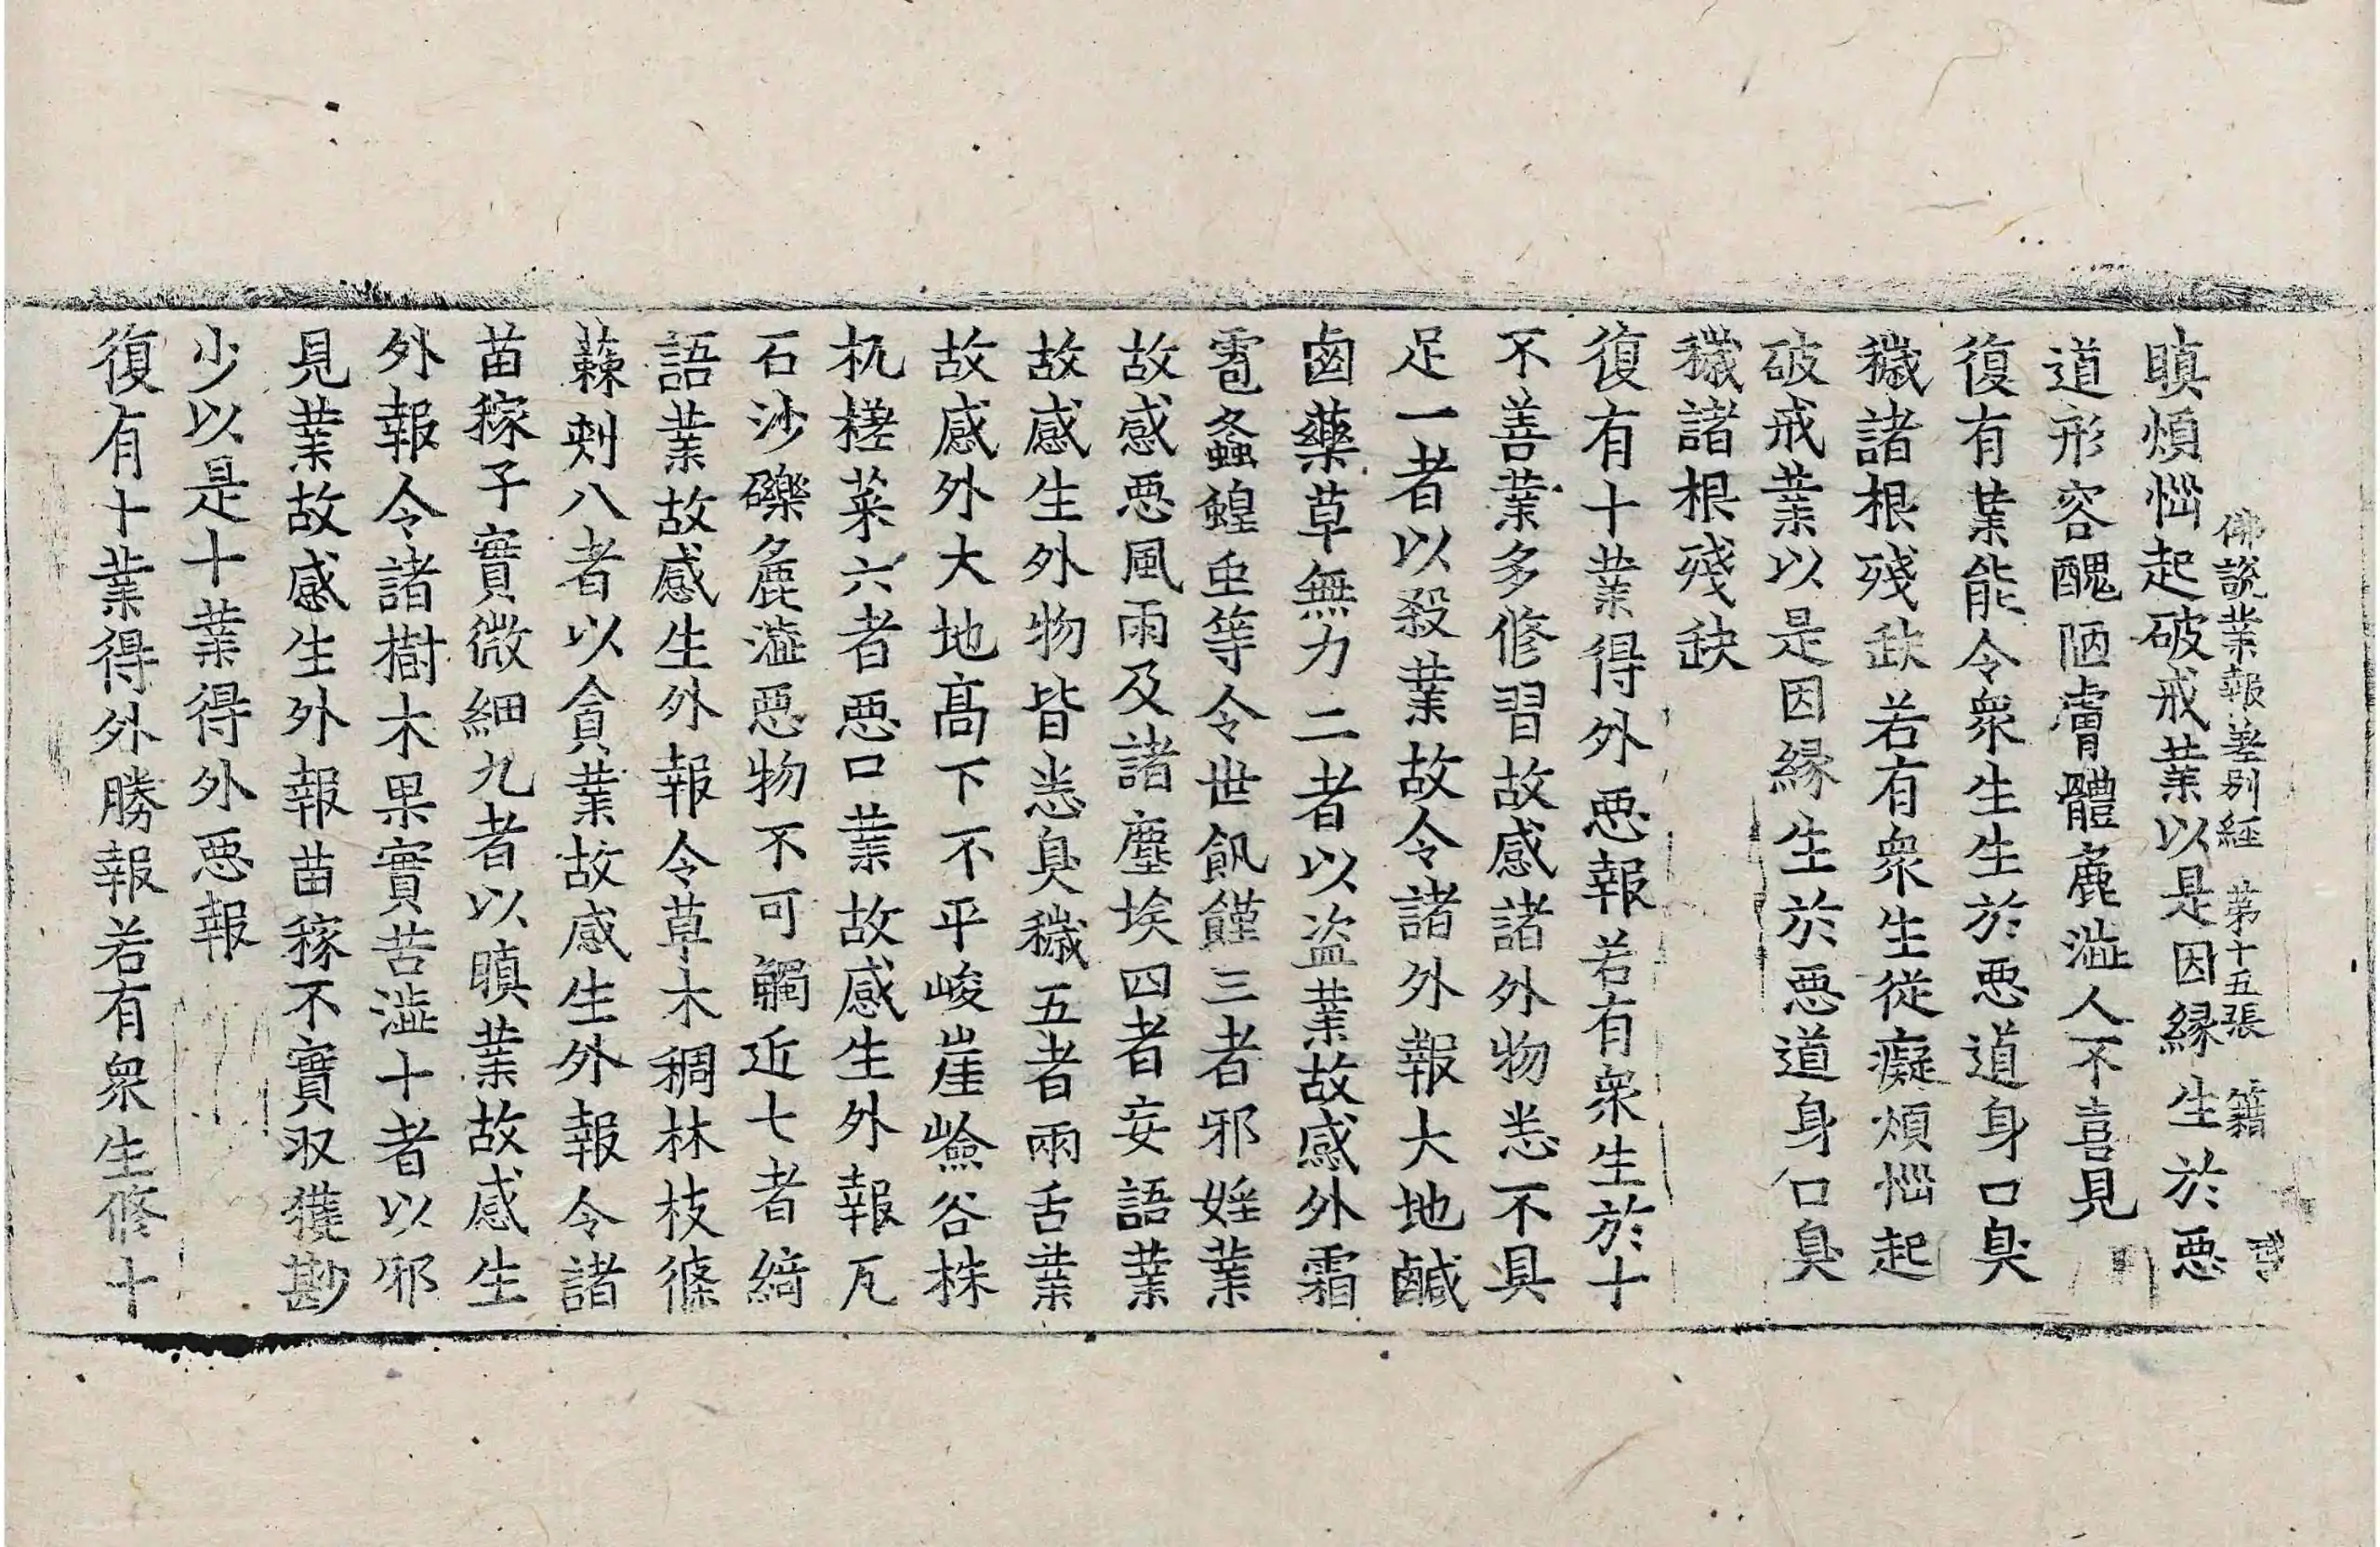 佛說業報差別經 第十五張 籍
瞋煩惱起破戒業以是因緣生於惡
道形容醜陋膚體麁澁人不喜見
復有業能令衆生生於惡道身口臭
穢諸根殘缺若有衆生從癡煩惱起
破戒業以是因緣生於惡道身口臭
穢諸根殘缺
復有十業得外惡報若有衆生於十
不善業多修習故感諸外物悉不具
足一者以殺業故令諸外報大地鹹
鹵藥草無力二者以盜業故感外霜
雹螽蝗虫等令世飢饉三者邪婬業
故感惡風雨及諸塵埃四者妄語業
故感生外物皆悉臭穢五者兩舌業
故感外大地高下不平峻崖嶮谷株
杌槎菜六者惡口業故感生外報瓦
石沙礫麁澁惡物不可觸近七者綺
語業故感生外報令草木稠林枝條
蕀刺八者以貪業故感生外報令諸
苗稼子實微細九者以瞋業故感生
外報令諸樹木果實苦澁十者以邪
見業故感生外報苗稼不實収獲尠
少以是十業得外惡報
復有十業得外勝報若有衆生修十